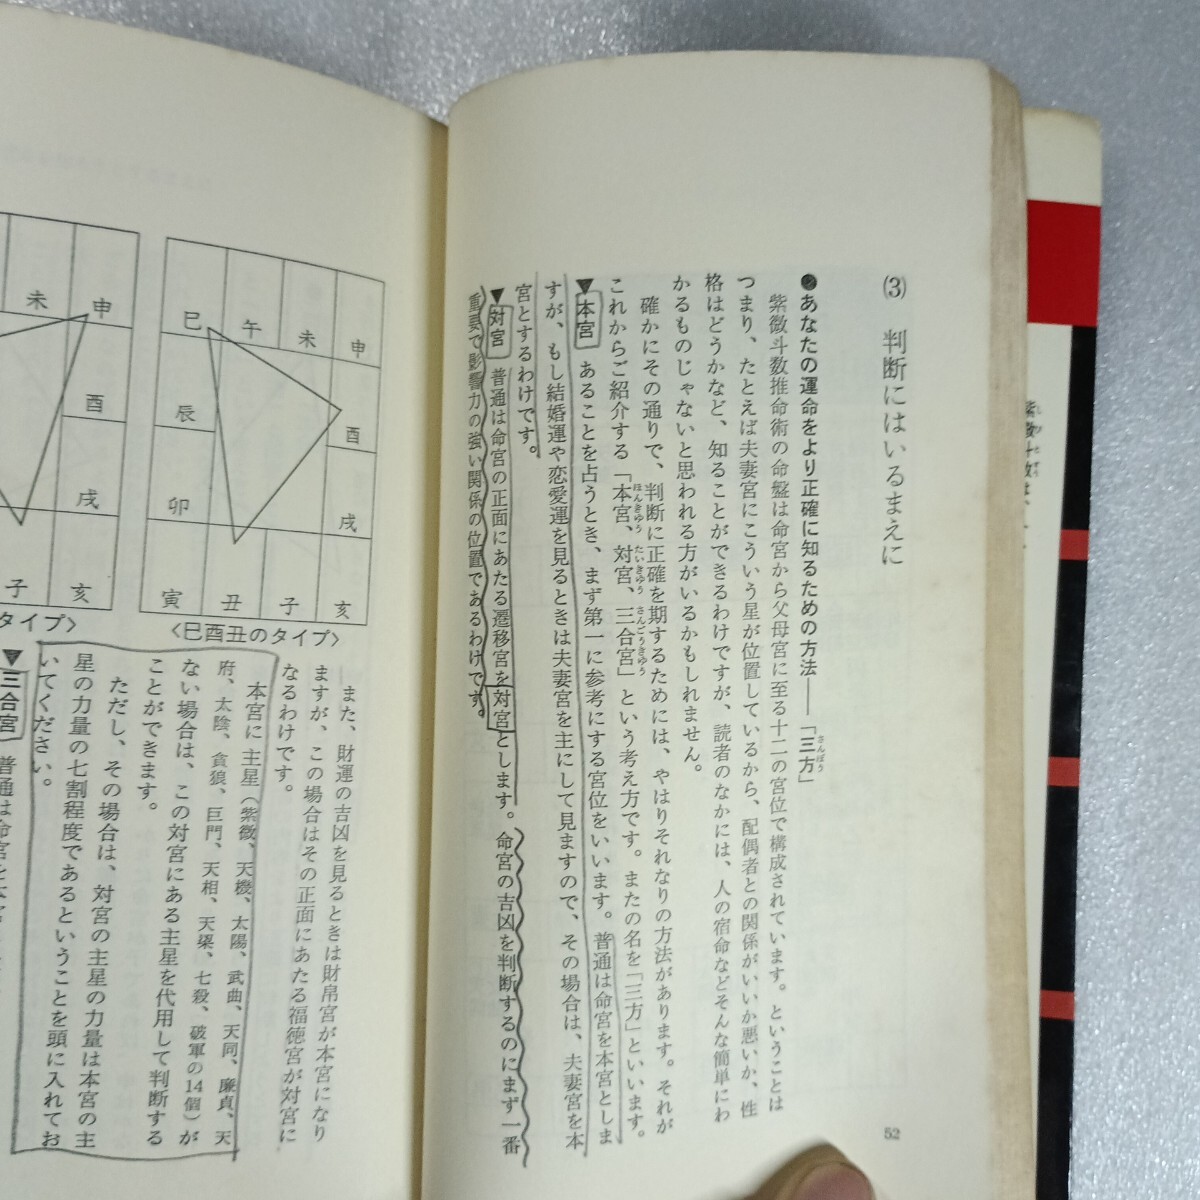 (3) 判断にはいるまえに
●あなたの運命をより正確に知るための方法――「三方」
さんぽう
紫微斗数推命術の命盤は命宮から父母宮に至る十二の宮位で構成されています。ということは
つまり、たとえば夫妻宮にこういう星が位置しているから、配偶者との関係がいいか悪いか、性
格はどうかなど、知ることができるわけですが、読者のなかには、人の宿命などそんな簡単にわ
かるものじゃないと思われる方がいるかもしれません。
確かにその通りで、判断に正確を期するためには、やはりそれなりの方法があります。それが
これからご紹介する「本宮、対宮、三合宮」という考え方です。またの名を「三方」といいます。
ほんきゆう たいきゆう さんごうきゆう
▼本宮 あることを占うとき、まず第一に参考にする宮位をいいます。普通は命宮を本宮としま
すが、もし結婚運や恋愛運を見るときは夫妻宮を主にして見ますので、その場合は、夫妻宮を本
宮とするわけです。
▼対宮 普通は命宮の正面にあたる遷移宮を対宮とします。命宮の吉凶を判断するのにまず一番
重要で影響力の強い関係の位置であるわけです。
52
巳 午 未 申
辰 酉
卯 戌
寅 丑 子 亥
〈巳酉丑のタイプ〉
未 申
酉
戌
子 亥
タイプ〉
また、財運の吉凶を見るときは財帛宮が本宮になり
ますが、この場合はその正面にあたる福徳宮が対宮に
なるわけです。
本宮に主星(紫微、天機、太陽、武曲、天同、廉貞、天
府、太陰、貪狼、巨門、天相、天梁、七殺、破軍の14個)が
ない場合は、この対宮にある主星を代用して判断する
ことができます。
ただし、その場合は、対宮の主星の力量は本宮の主
星の力量の七割程度であるということを頭に入れてお
いてください。
▼三合宮 普通は命宮を本宮